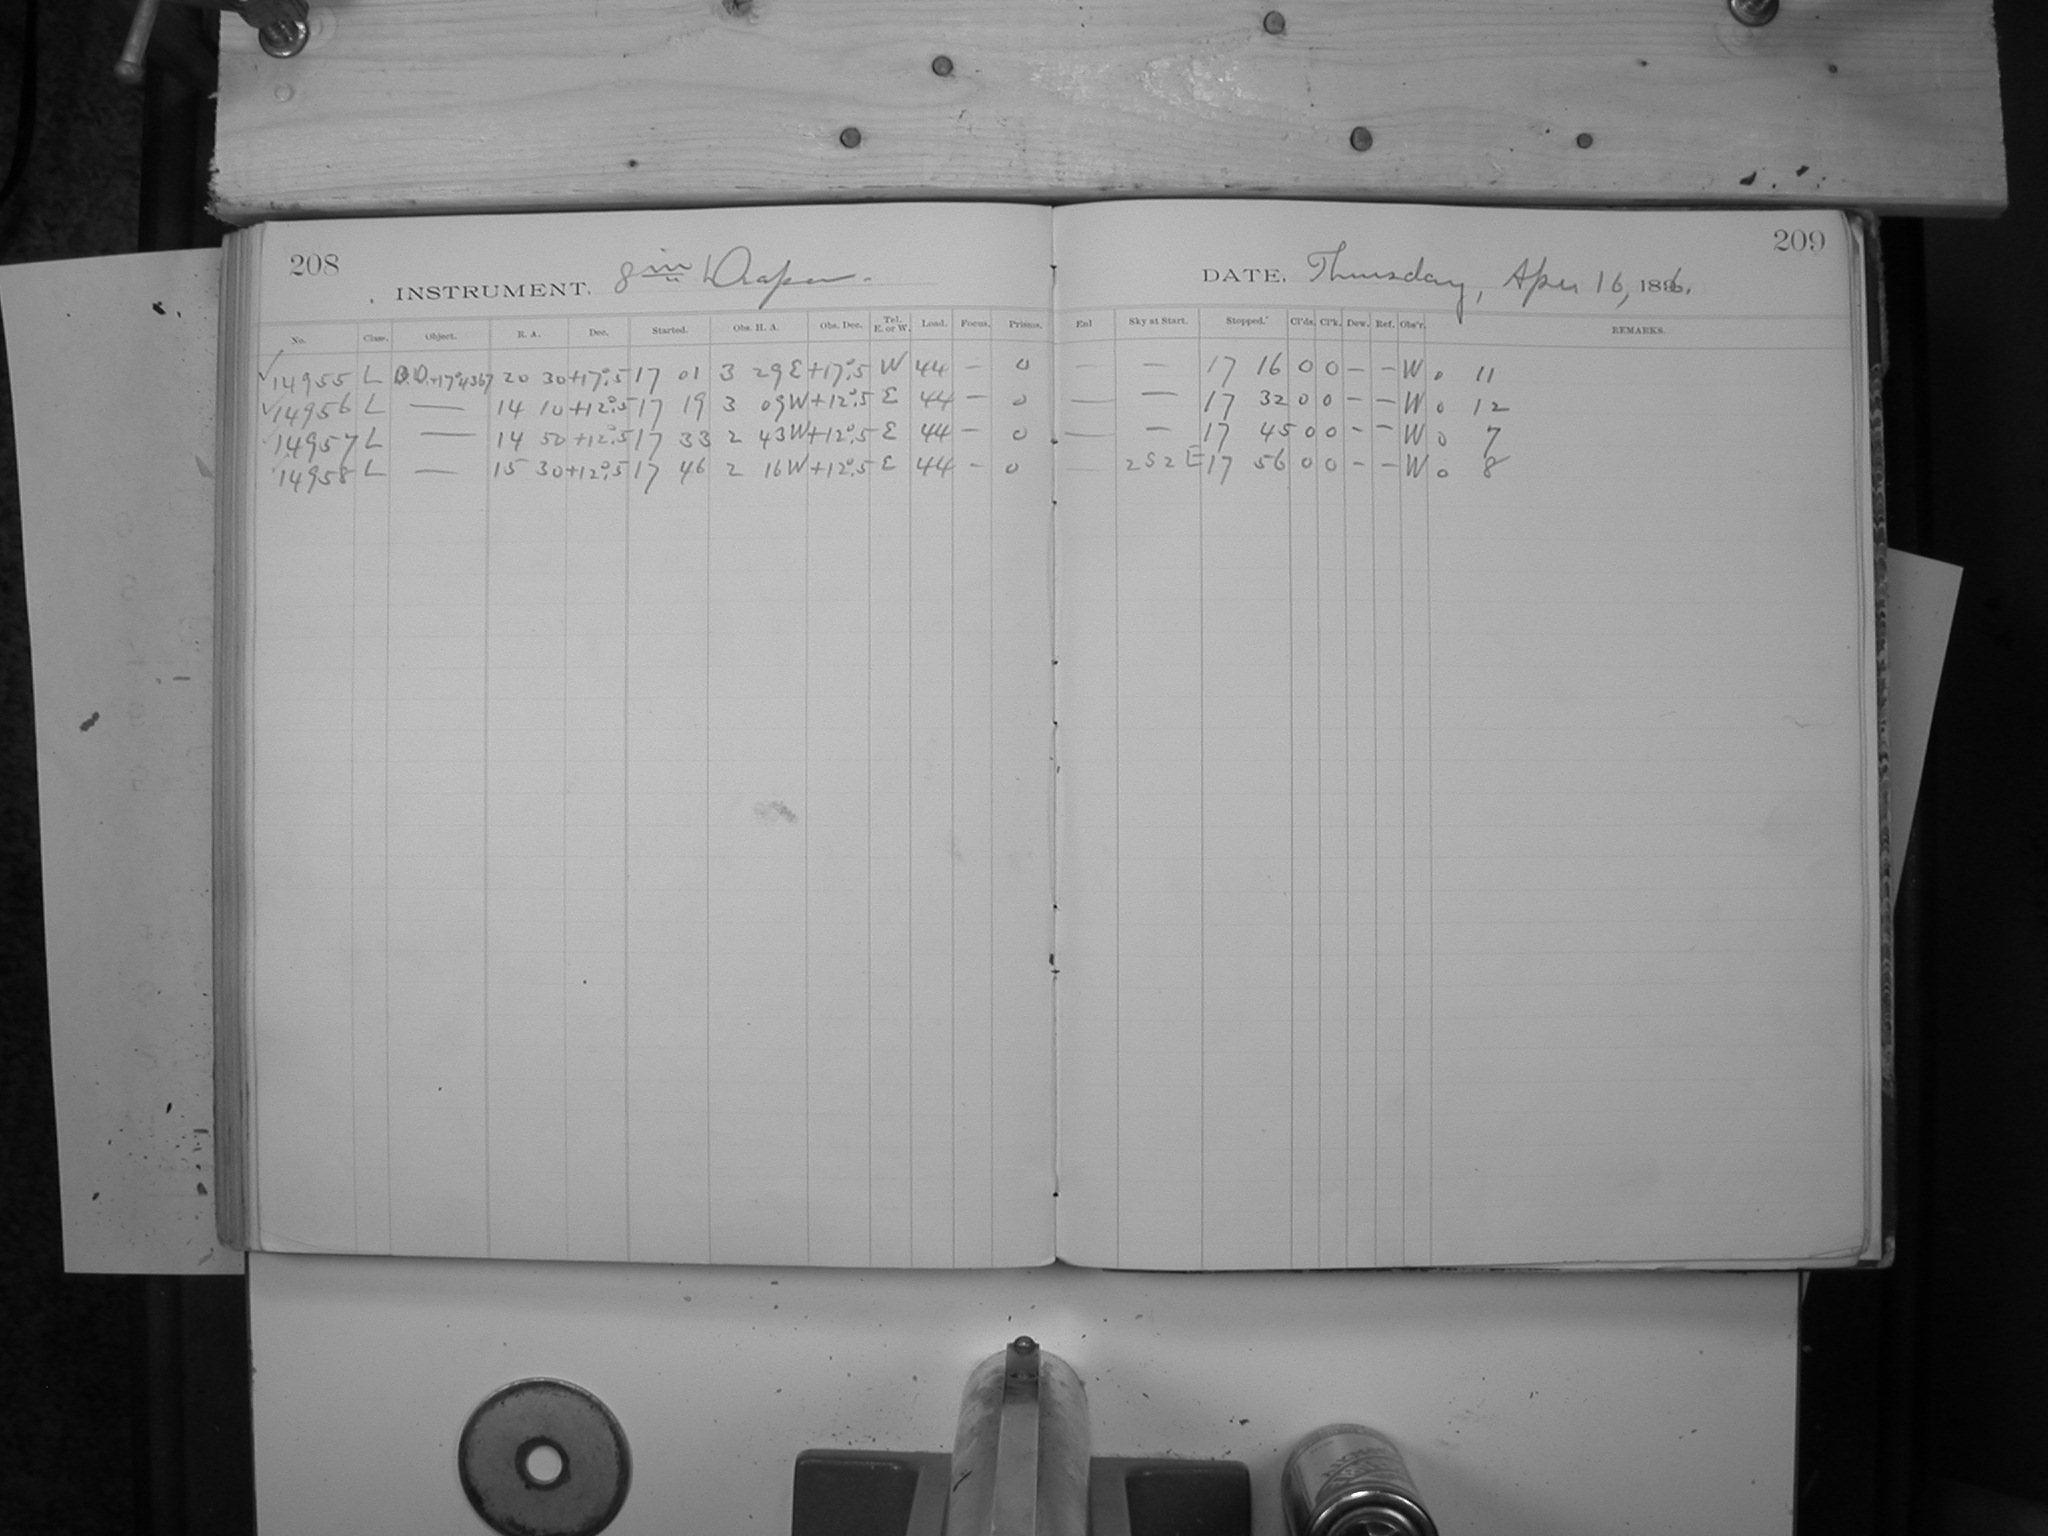 208
209
INSTRUMENT. 8 in Draper.
DATE, Thursday, Apr 16, 1896.
No. Class. Object. R. A. Dec. Started. Obs. H. A. Obs. Dec. Tel. E. or W. Load. Focus. Prisms. Enl Sky at Start. Stopped. Cl'ds. Cl'k. Dew. Ref. Obs'r. REMARKS.
✓14955 L B.D.+17°4367 20 30 +17°.5 17 01 3 29 E +17°.5 W 44 — 0 — — 17 16 0 0 — — W 0 11
✓14956 L — 14 10 +12°.5 17 19 3 09 W +12°.5 E 44 — 0 — — 17 32 0 0 — — W 0 12
✓14957 L — 14 50 +12°.5 17 33 2 43 W +12°.5 E 44 — 0 — — 17 45 0 0 — — W 0 7
✓14958 L — 15 30 +12°.5 17 46 2 16 W +12°.5 E 44 — 0 — 2 S 2 E 17 56 0 0 — — W 0 8